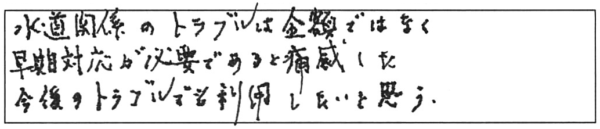 水道関係のトラブルは金額ではなく
早期対応が必要であると痛感した
今後のトラブルでも利用したいと思う.